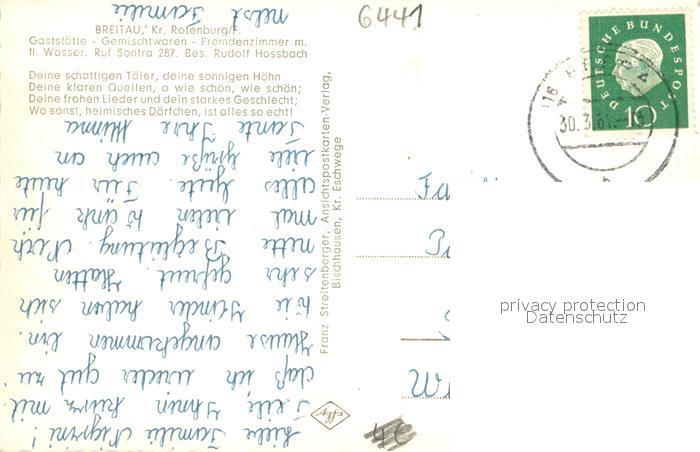 6441
BREITAU, Kr. Rotenburg/F.
Gaststätte - Gemischtwaren - Fremdenzimmer m.
fl. Wasser. Ruf Sontra 287. Bes. Rudolf Hossbach
Deine schattigen Täler, deine sonnigen Höhn
Deine klaren Quellen, o wie schön, wie schön;
Deine frohen Lieder und dein starkes Geschlecht;
Wo sonst, heimisches Dörfchen, ist alles so echt!
Liebe Familie
Teile Ihnen kurz mit.
daß ich wieder gut zu
Hause angekommen bin.
Die Kinder haben sich
sehr gefreut. Hatten
nette Begleitung. Noch
mal vielen Dank für
alles Gute. Für heute
viele Grüße auch an
Tante Ihre Minna
nebst Familie
Franz Streitenberger, Ansichtspostkarten-Verlag,
Bischhausen, Kr. Eschwege
DEUTSCHE BUNDESPOST
10
30.3.61
privacy protection
Datenschutz
24